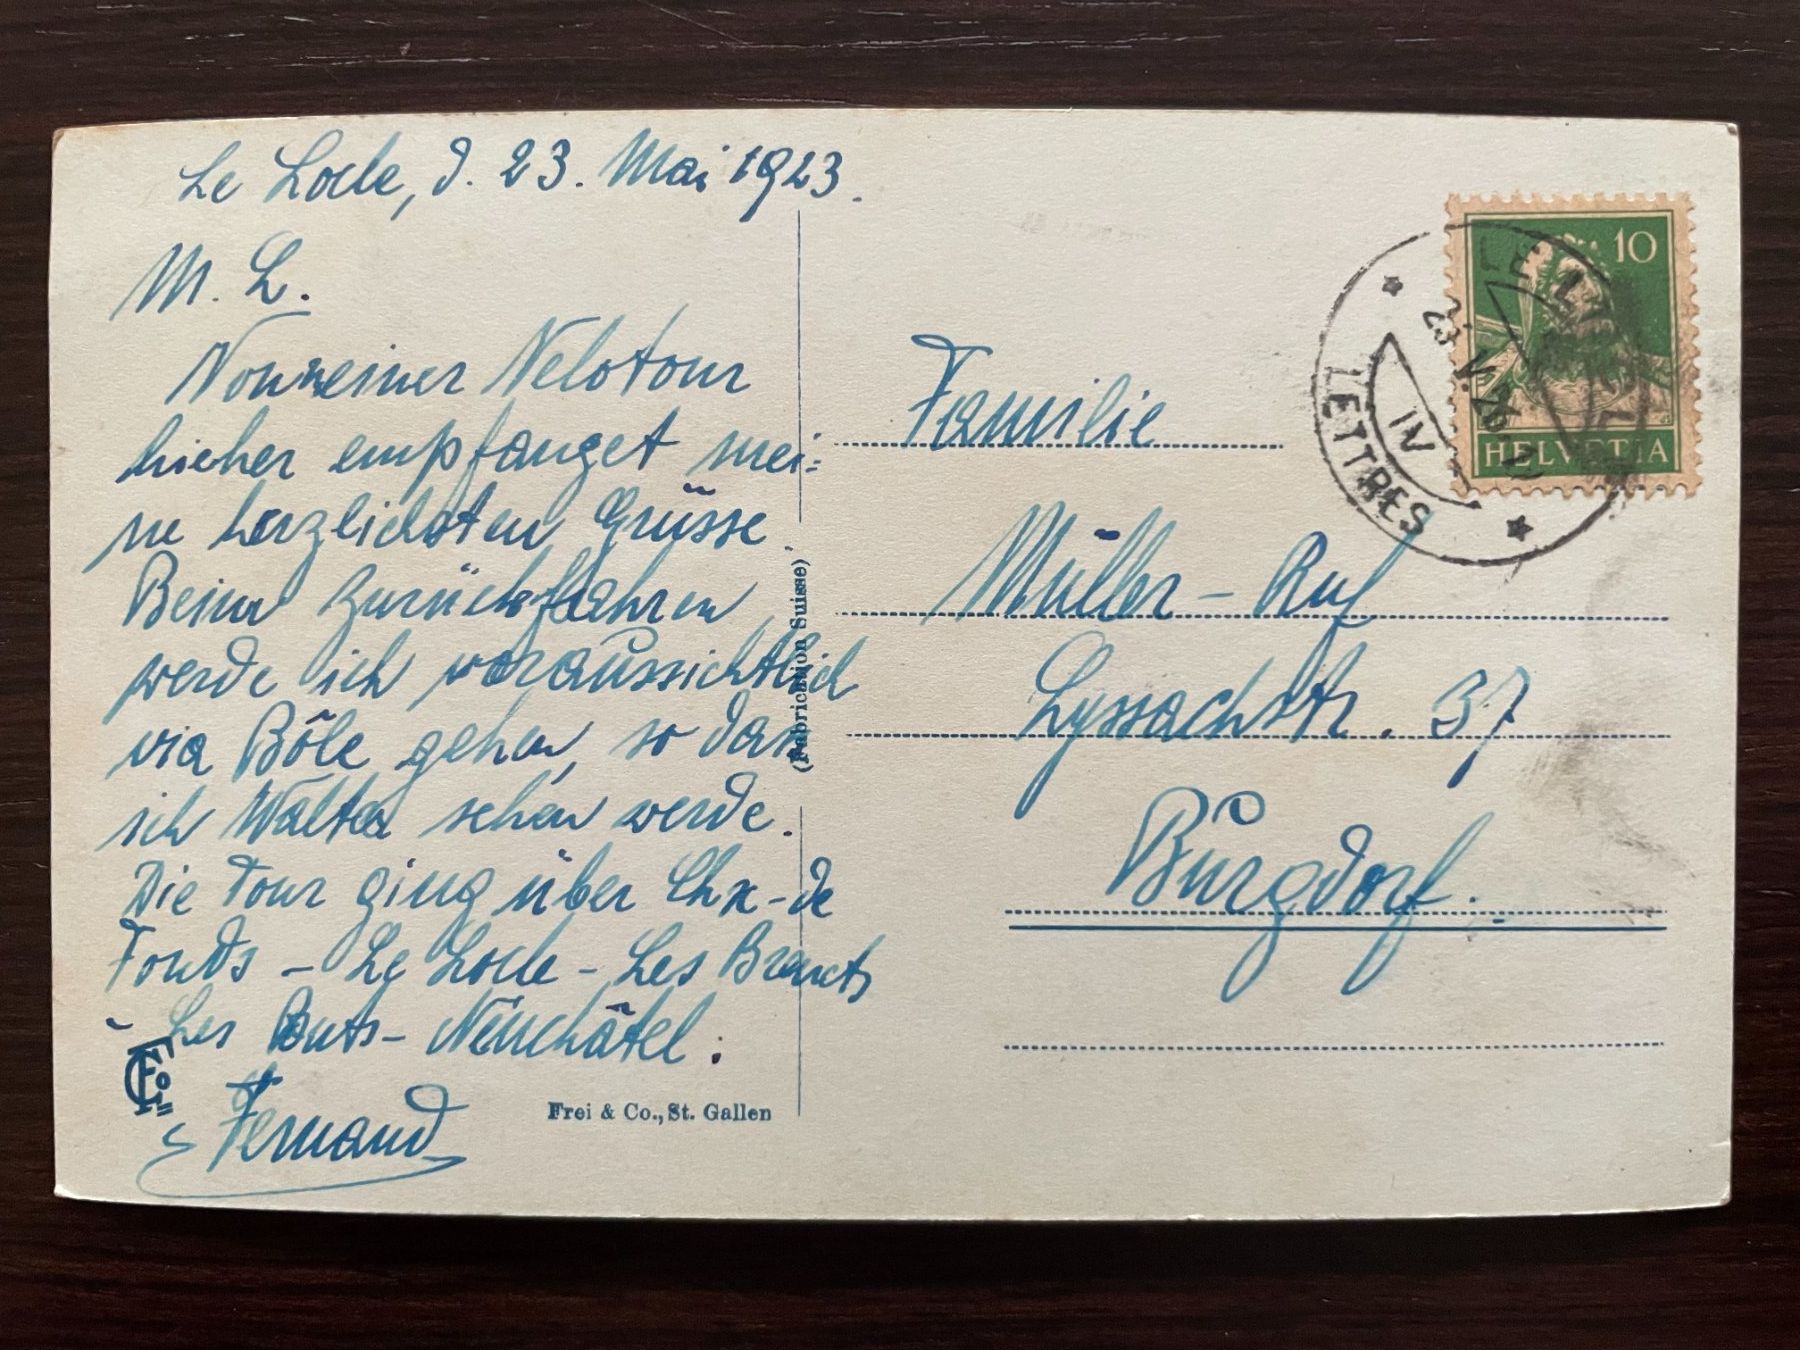 Le Locle, d. 23. Mai 1923.
M. L.
Von meiner Velotour
hieher empfanget mei-
ne herzlichsten Grüsse.
Beim Zurückfahren
werde ich voraussichtlich
via Bôle gehen, so dass
ich Walter sehen werde.
Die Tour ging über Chx-de
Fonds - Le Locle - Les Brenets
- Les Ponts - Neuchâtel.
Fernand
Frei & Co., St. Gallen
(Fabrication Suisse)
Familie
Müller-Ruf
Lyssachstr. 37
Burgdorf.
10
HELVETIA
LE
23.V.
IV
LETTRES